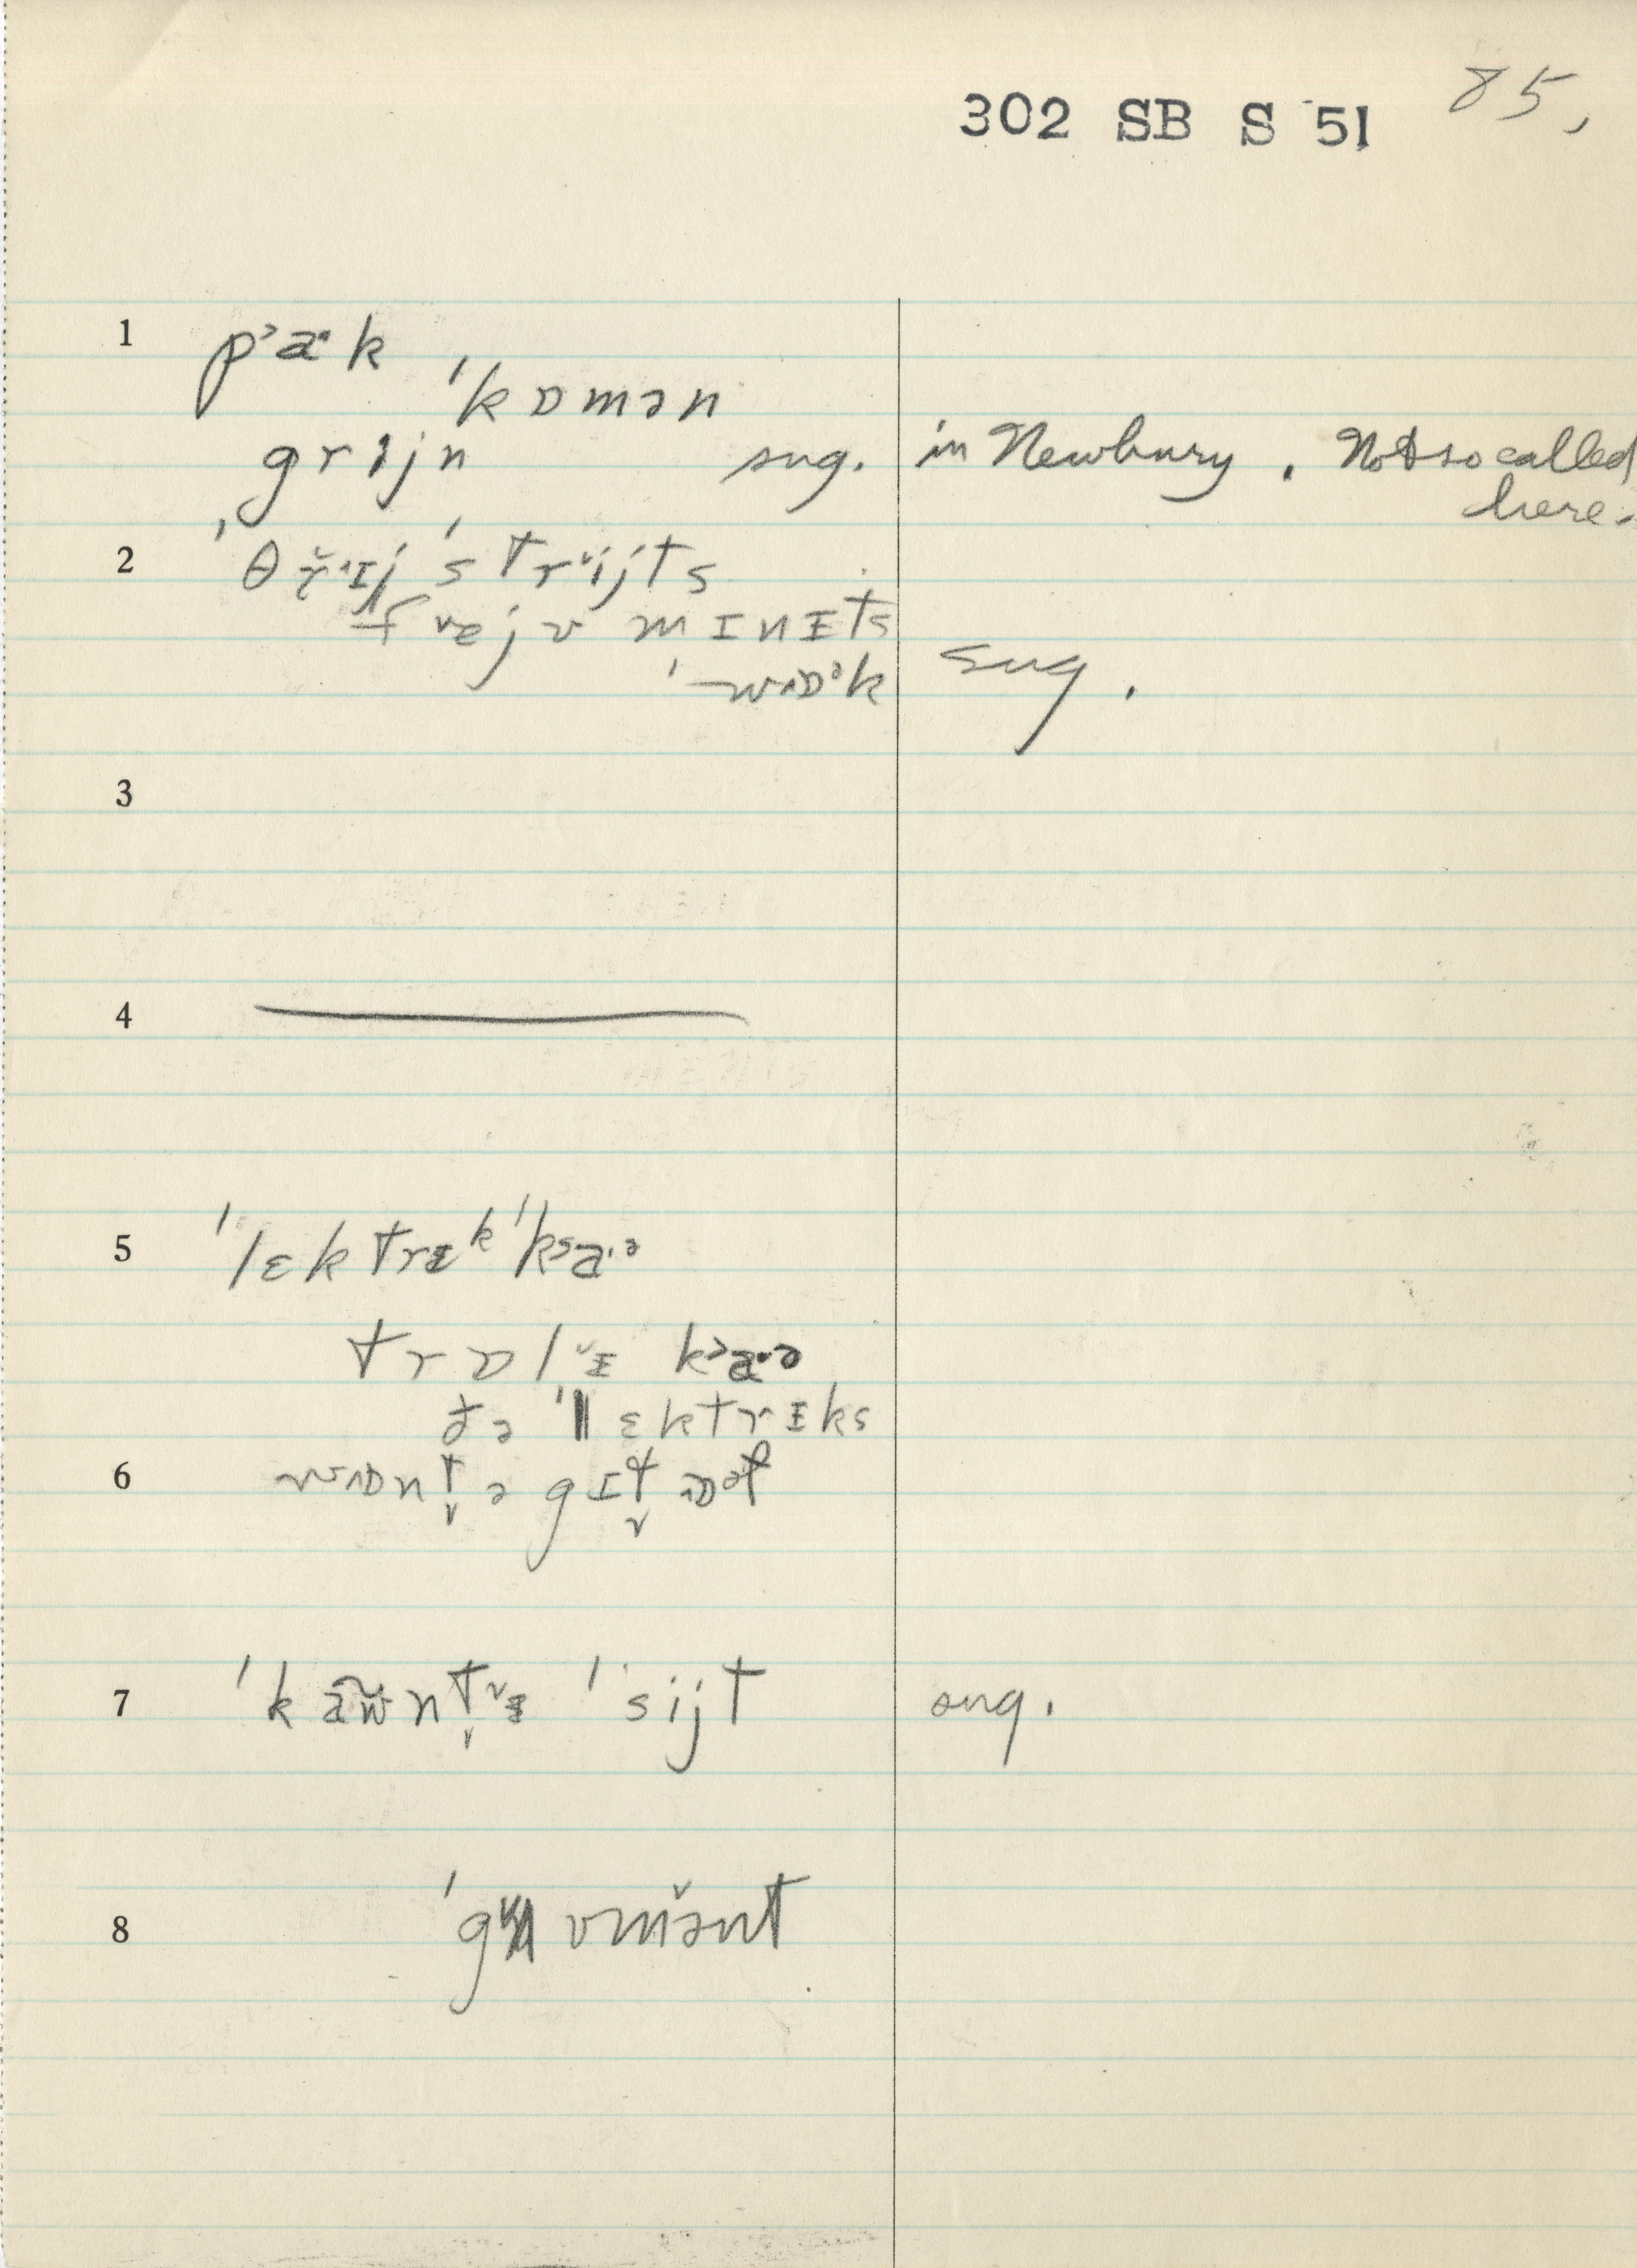 302 SB S 51 85,
1 pʾaˑk
ˈkɒmən
grijn sug. in Newbury. Not so called
here.
2 ˈθřˑɪj ˈstrˇijts
fˇɐjv mɪnɪts
ˈwɒᵊk sug.
3
4
5 ˈlɛktrɪᵏ ˈkʾaˑᵊ
trɒlˇɪ kʾaˑə
ðə ˈlɛktrɪks
6 wɒnt̬ ə gɪt̬ ɒᵊf
7 ˈkãw̃nt̬ˇɪ ˈsijt sug.
8 ˈgʌvmə̌nt